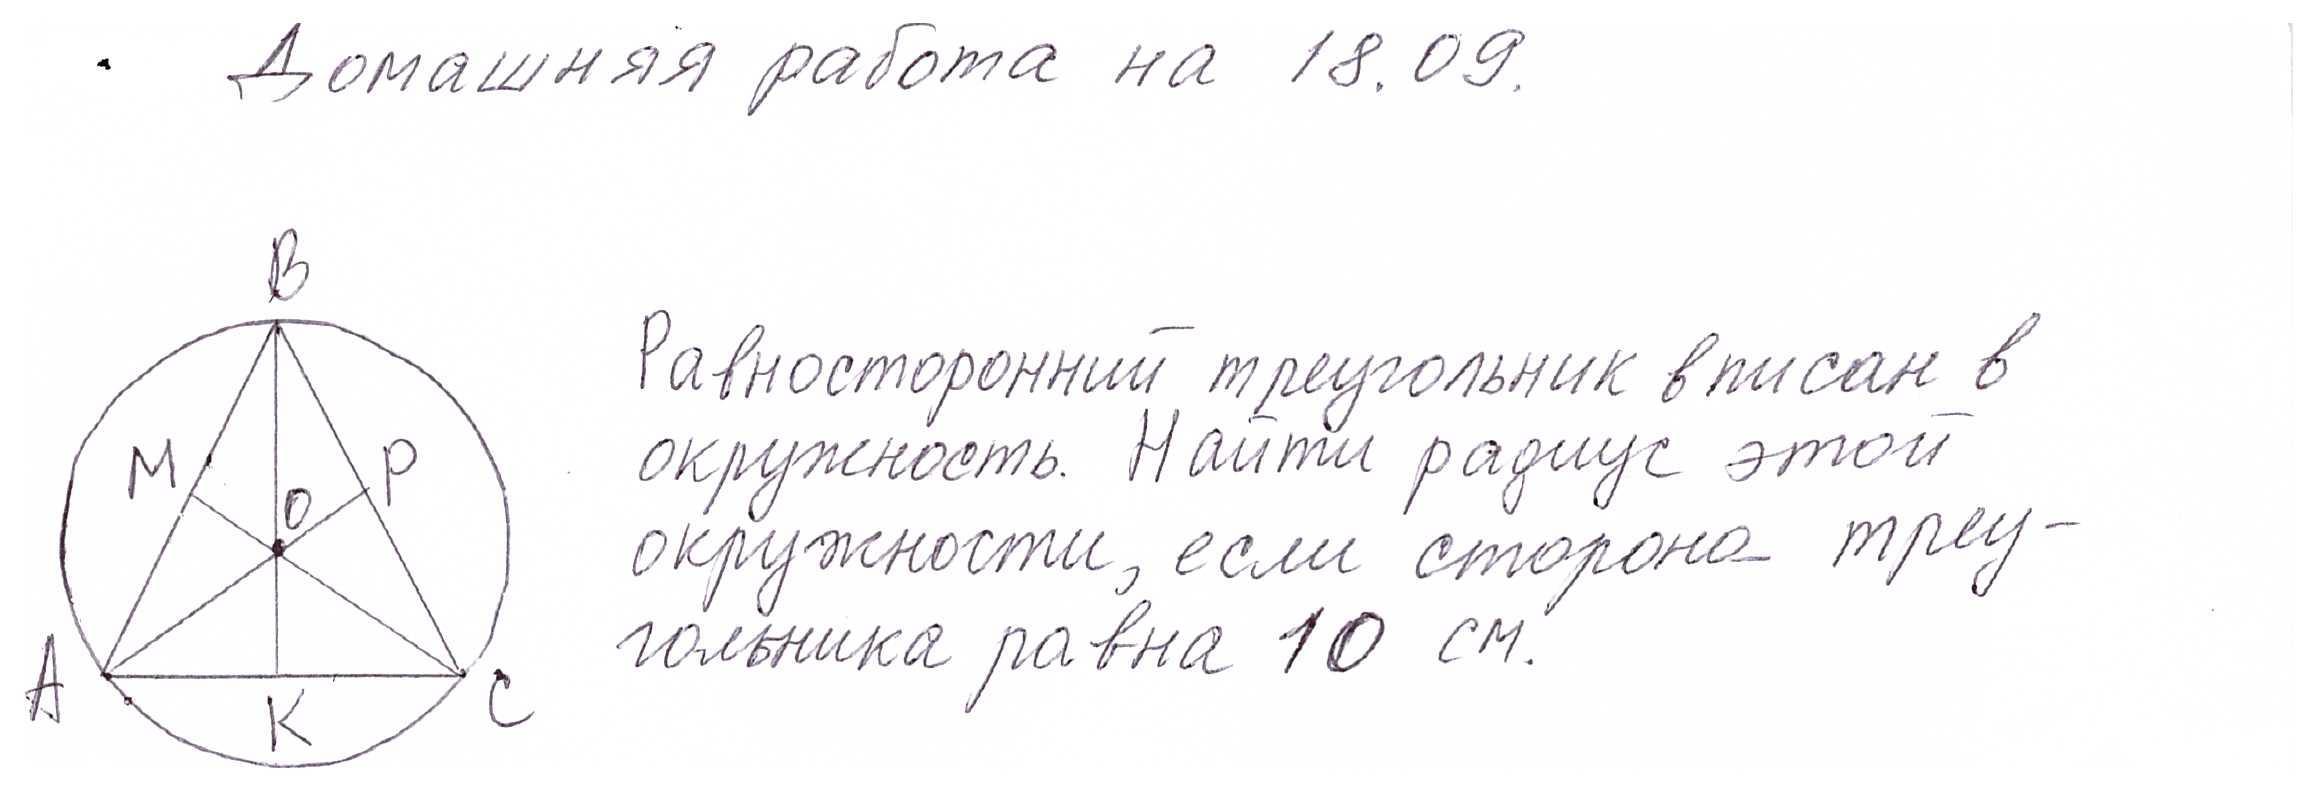 Домашняя работа на 18.09.
B
M
P
O
A
K
C
Равносторонний треугольник вписан в
окружность. Найти радиус этой
окружности, если сторона треу-
гольника равна 10 см.